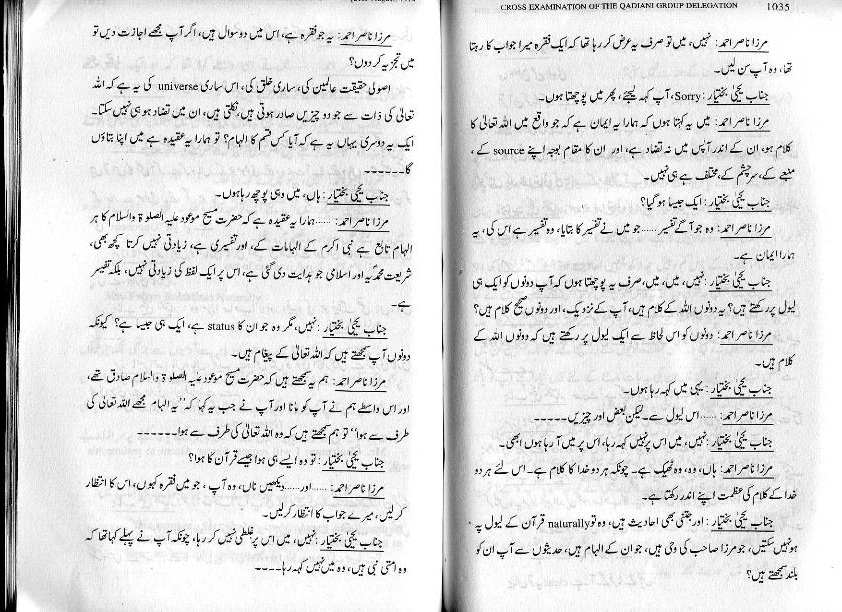 مرزا ناصر احمد: یہ جو فقرہ ہے، اس میں دو سوال ہیں، اگر آپ مجھے اجازت دیں تو
میں تجزیہ کر دوں؟
اصولی حقیقت عالمین کی، ساری خلق کی، اس ساری universe کی یہ ہے کہ اللہ
تعالیٰ کی ذات سے جو دو چیزیں صادر ہوتی ہیں، نکلتی ہیں، ان میں تضاد ہو ہی نہیں سکتا۔
ایک یہ دوسری یہاں یہ ہے کہ آیا کس قسم کا الہام؟ تو ہمارا یہ عقیدہ ہے میں اپنا بتاؤں
گا۔۔۔۔۔۔
جناب یحییٰ بختیار: ہاں، میں وہی پوچھ رہا ہوں۔
مرزا ناصر احمد: ......ہمارا یہ عقیدہ ہے کہ حضرت مسیح موعود علیہ الصلوۃ والسلام کا ہر
الہام تابع ہے نبی اکرم کے الہامات کے، اور تفسیری ہے، زیادتی نہیں کرتا کچھ بھی،
شریعت محمدیہ اور اسلامی جو ہدایت دی گئی ہے، اس پر ایک لفظ کی زیادتی نہیں، بلکہ تفسیر
ہے۔
جناب یحییٰ بختیار: نہیں، مگر وہ جو ان کا status ہے، ایک ہی جیسا ہے؟ کیونکہ
دونوں آپ سمجھتے ہیں کہ اللہ تعالیٰ کے پیغام ہیں۔
مرزا ناصر احمد: ہم یہ سمجھتے ہیں کہ حضرت مسیح موعود علیہ الصلوۃ والسلام صادق تھے،
اور اس واسطے ہم نے آپ کو مانا اور آپ نے جب یہ کہا کہ ”یہ الہام مجھے اللہ تعالیٰ کی
طرف سے ہوا“ تو ہم سمجھتے ہیں کہ وہ اللہ تعالیٰ کی طرف سے ہوا۔۔۔۔۔۔
جناب یحییٰ بختیار: تو وہ ایسے ہی ہوا جیسے قرآن کا ہوا؟
مرزا ناصر احمد: ......اور......دیکھیں ناں، وہ آپ، جو میں فقرہ کہوں، اس کا انتظار
کر لیں، میرے جواب کا انتظار کر لیں۔
جناب یحییٰ بختیار: نہیں، میں اس پر غلطی نہیں کر رہا، چونکہ آپ نے پہلے کہا تھا کہ
وہ امتی نبی ہیں، وہ میں نہیں کہہ رہا۔۔۔۔
CROSS EXAMINATION OF THE QADIANI GROUP DELEGATION 1035
مرزا ناصر احمد: نہیں، میں تو صرف یہ عرض کر رہا تھا کہ ایک فقرہ میرا جواب کا رہتا
تھا، وہ آپ سن لیں۔
جناب یحییٰ بختیار: Sorry، آپ کہہ لیجئے، پھر میں پوچھتا ہوں۔
مرزا ناصر احمد: میں یہ کہتا ہوں کہ ہمارا یہ ایمان ہے کہ جو واقع میں اللہ تعالیٰ کا
کلام ہو، ان کے اندر آپس میں نہ تضاد ہے، اور ان کا مقام بوجہ اپنے source کے،
منبعے کے، سرچشم کے، مختلف ہے ہی نہیں۔
جناب یحییٰ بختیار: ایک جیسا ہو گیا؟
مرزا ناصر احمد: وہ جو آگے تفسیر ......جو میں نے تفسیر کا بتایا، وہ تفسیر ہے اس کی، یہ
ہمارا ایمان ہے۔
جناب یحییٰ بختیار: نہیں، میں، میں، صرف یہ پوچھتا ہوں کہ آپ دونوں کو ایک ہی
لیول پر رکھتے ہیں؟ یہ دونوں اللہ کے کلام ہیں، آپ کے نزدیک، اور دونوں صحیح کلام ہیں؟
مرزا ناصر احمد: دونوں کو اس لحاظ سے ایک لیول پر رکھتے ہیں کہ دونوں اللہ کے
کلام ہیں۔
جناب یحییٰ بختیار: یہی میں کہہ رہا ہوں۔
مرزا ناصر احمد: ......اس لیول سے۔ لیکن بعض اور چیزیں۔۔۔۔۔
جناب یحییٰ بختیار: نہیں، میں اس پر نہیں کہہ رہا، اس پر میں آ رہا ہوں ابھی۔
مرزا ناصر احمد: ہاں، وہ، وہ ٹھیک ہے۔ چونکہ ہر دو خدا کا کلام ہے۔ اس لئے ہر دو
خدا کے کلام کی عظمت اپنے اندر رکھتا ہے۔
جناب یحییٰ بختیار: اور جتنی بھی احادیث ہیں، وہ تو naturally قرآن کے لیول پہ
ہو نہیں سکتیں، جو مرزا صاحب کی وحی ہیں، جو ان کے الہام ہیں، حدیثوں سے آپ ان کو
بلند سمجھتے ہیں؟